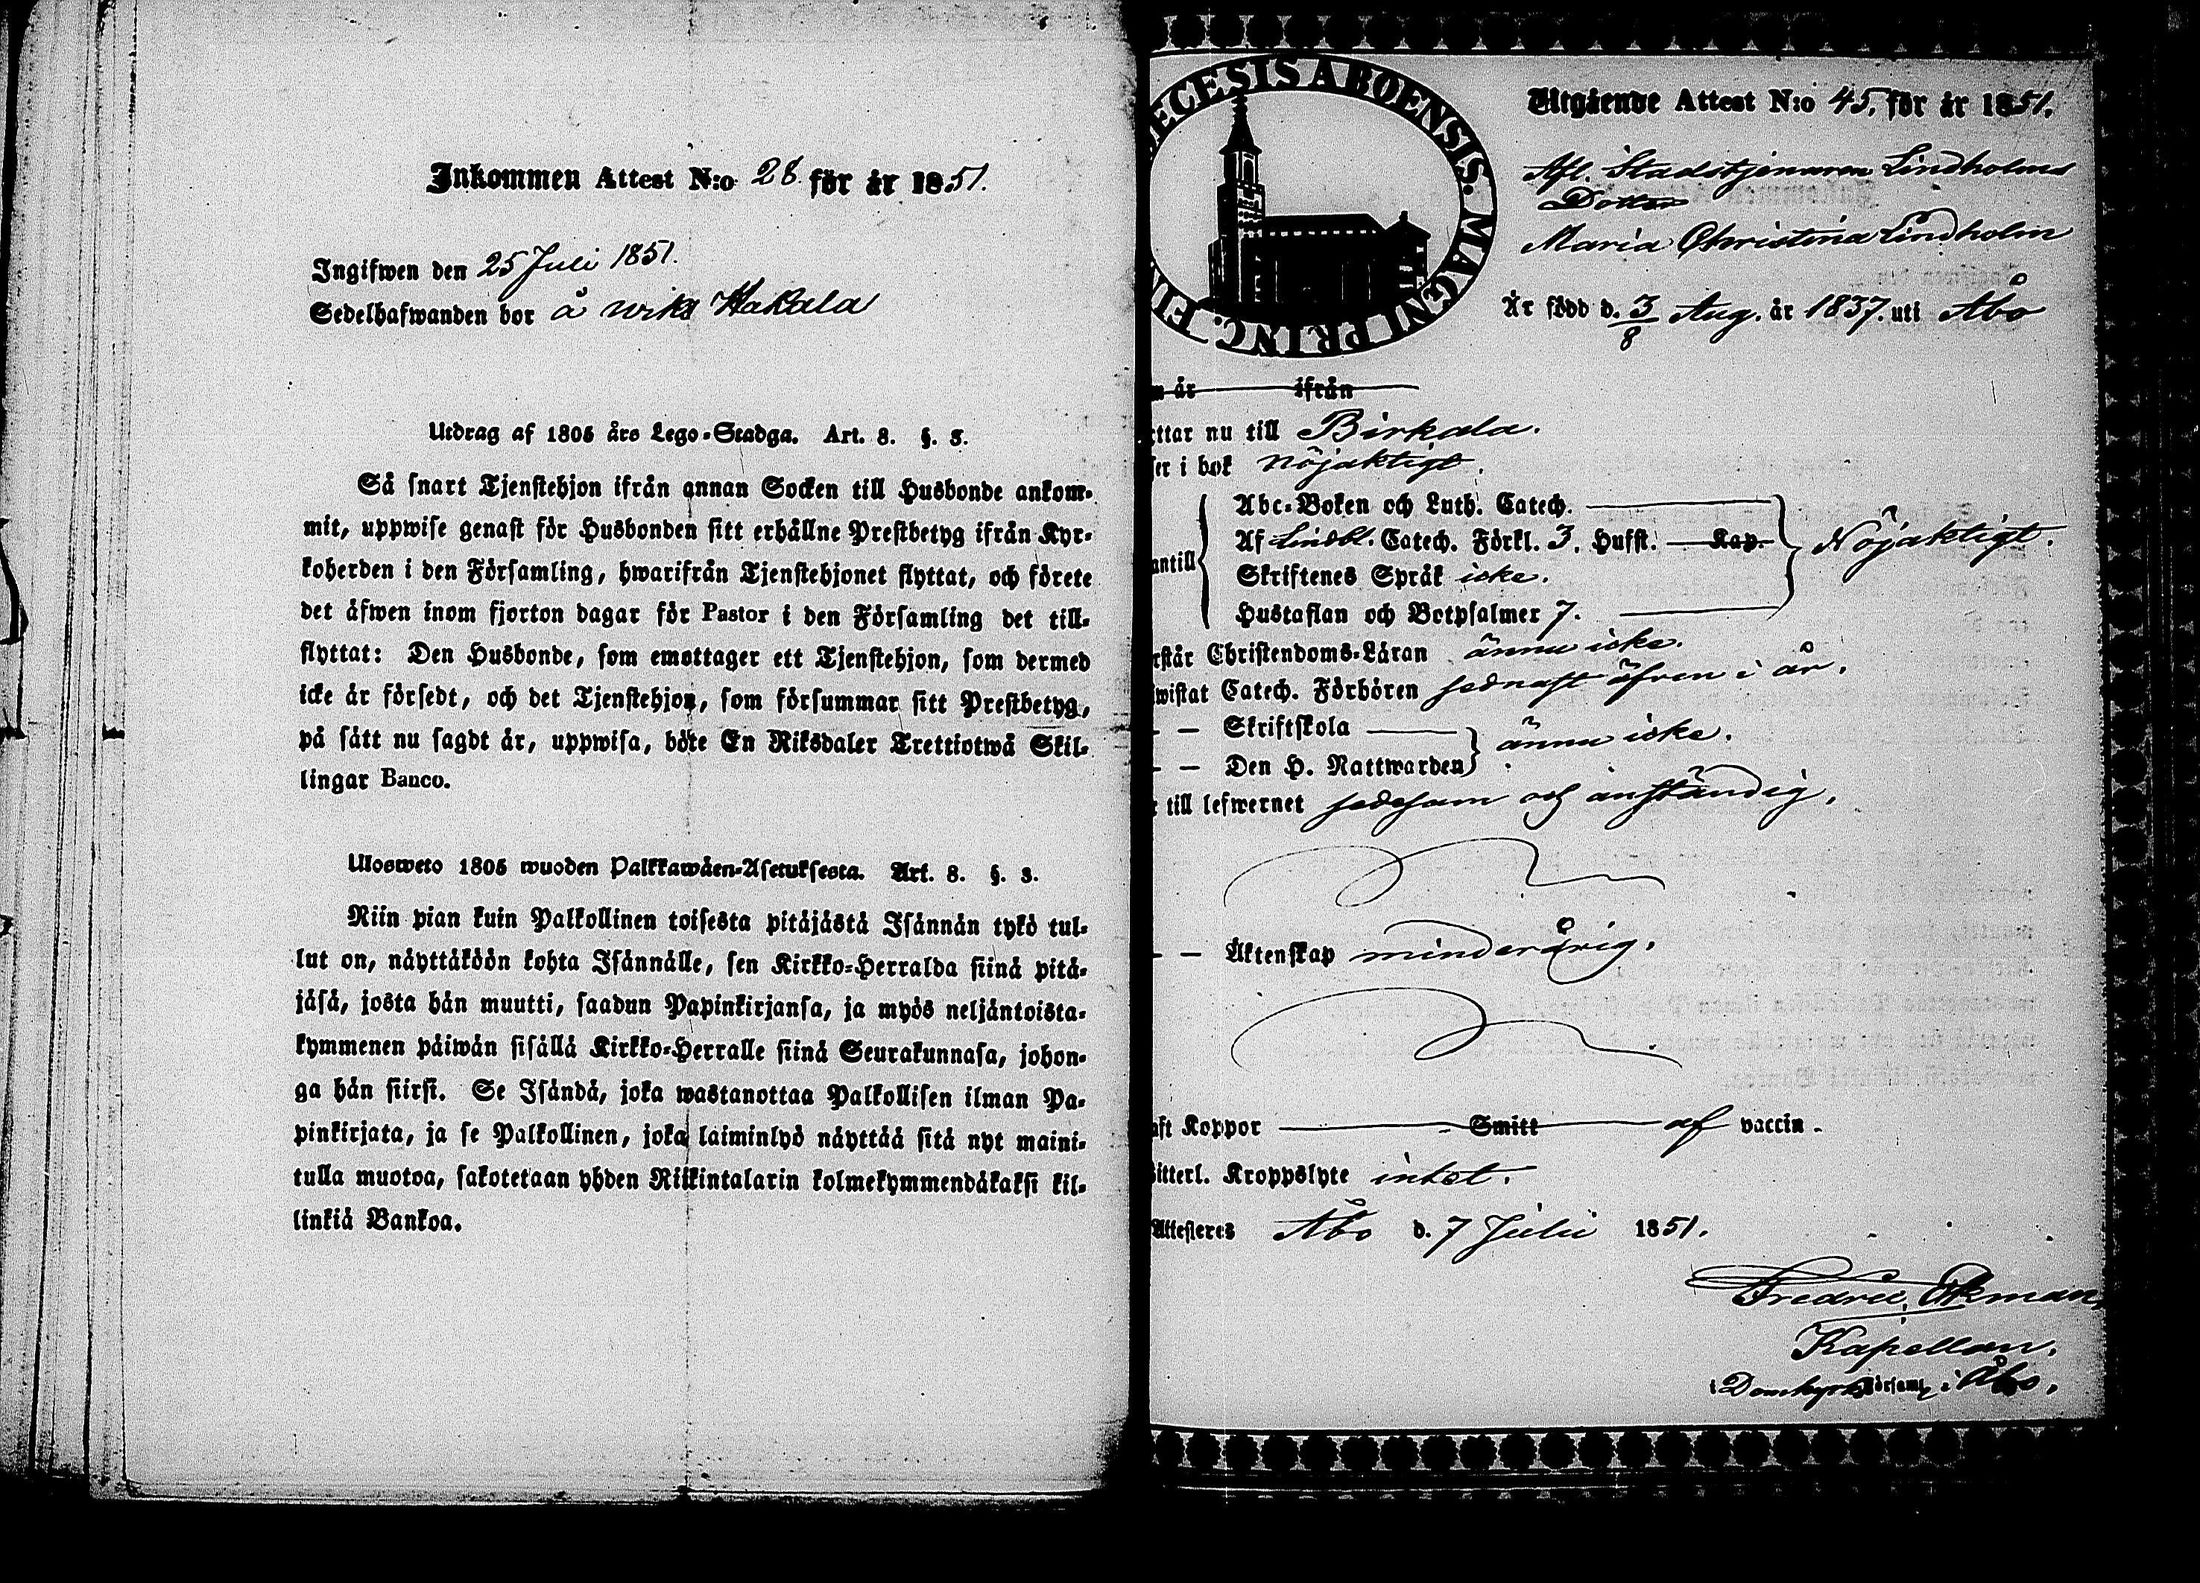 Inkommen Attest N:o 28. för år 1851.
Ingifwen den 25 Juli 1851.
Sedelhafwanden bor å Hakala
Utdrag af 1805 års Lego-Stadga. Art. 8. §. 3.
Så snart Tjenstehjon ifrån annan Socken till Husbonde ankom-
mit, uppwise genast för Husbonden sitt erhållne Prestbetyg ifrån Kyr-
koherden i den Församling, hwarifrån Tjenstehjonet flyttat, och förete
det äfwen inom fjorton dagar för Pastor i den Församling det till-
flyttat: Den Husbonde, som emottager ett Tjenstehjon, som dermed
icke är försedt, och det Tjenstehjon, som försummar sitt Prestbetyg,
på sätt nu sagdt är, uppwisa, böte En Riksdaler Trettiotwå Skil-
lingar Banco.
Ulosweto 1805 wuoden Palkkawäen-Asetuksesta. Art. 8. §. 3.
Niin pian kuin Palkollinen toisesta pitäjästä Isännän tykö tul-
lut on, näyttäköön kohta Isännälle, sen Kirkko-Herralda siinä pitä-
jäsä, josta hän muutti, saadun Papinkirjansa, ja myös neljäntoista-
kymmenen päiwän sisällä Kirkko-Herralle siinä Seurakunnasa, johon-
ga hän siirsi. Se Isändä, joka wastanottaa Palkollisen ilman Pa-
pinkirjata, ja se Palkollinen, joka laiminlyö näyttää sitä nyt maini-
tulla muotoa, sakotetaan yhden Riikintalarin kolmekymmendäkaksi kil-
linkiä Bankoa.
ECESIS ABOENSIS. MAGNI PRINC. FIN
Utgående Attest N:o 45. för år 1851.
Afl. Stadstjenaren Lindholms
Dotter
Maria Christina Lindholm
Är född d. 3/8 Aug. år 1837. uti Åbo
n år ifrån
ttar nu till Birkala.
ser i bok nöjaktigt.
Abc-Boken och Luth. Catech.
antill Af Lindbl. Catech. Förkl. 3. Hufst. Kap. Nöjaktigt.
Skriftenes Språk icke.
Hustaflan och Botpsalmer 7.
rstår Christendoms-Läran ännu icke.
wistat Catech. Förhören sednast äfven i år.
– – Skriftskola ännu icke.
– – Den H. Nattwarden
till lefwernet sedesam och anständig.
– – Äktenskap minderårig.
aft Koppor Smitt af vaccin.
itterl. Kroppslyte intet.
Attesteres Åbo d. 7 Julii 1851.
Fredric Ekman,
Kapellan.
i Domkyrko Församl. i Åbo.